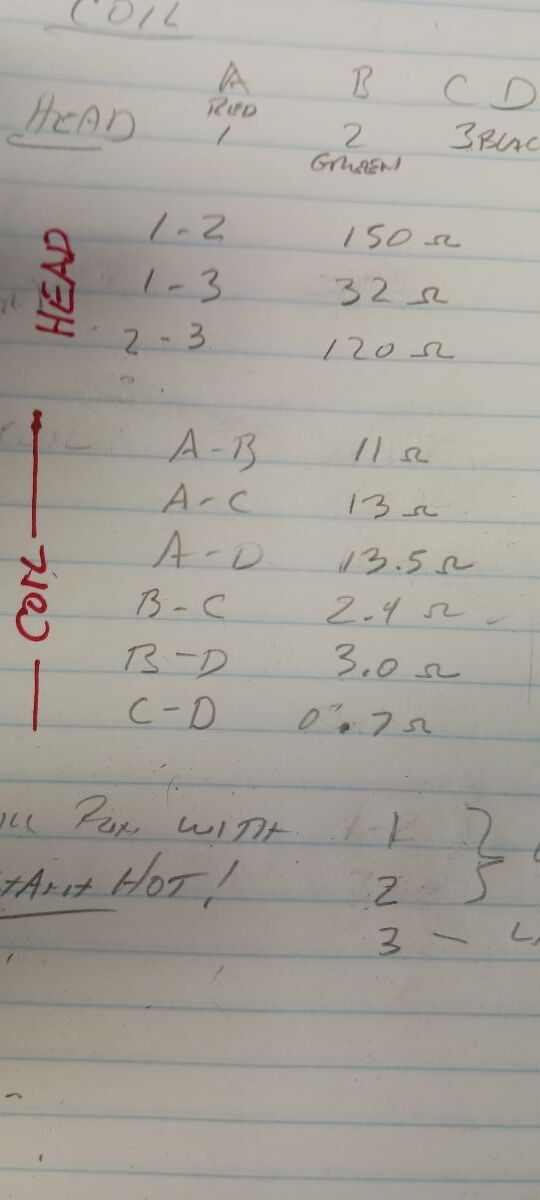 COIL
A B C D
RED
HEAD 1 2 3 BLAC
GREEN
HEAD
1-2 150 Ω
1-3 32 Ω
2-3 120 Ω
COIL
A-B 11 Ω
A-C 13 Ω
A-D 13.5 Ω
B-C 2.4 Ω
B-D 3.0 Ω
C-D 0.7 Ω
WITH 1
HOT! 2
3 -